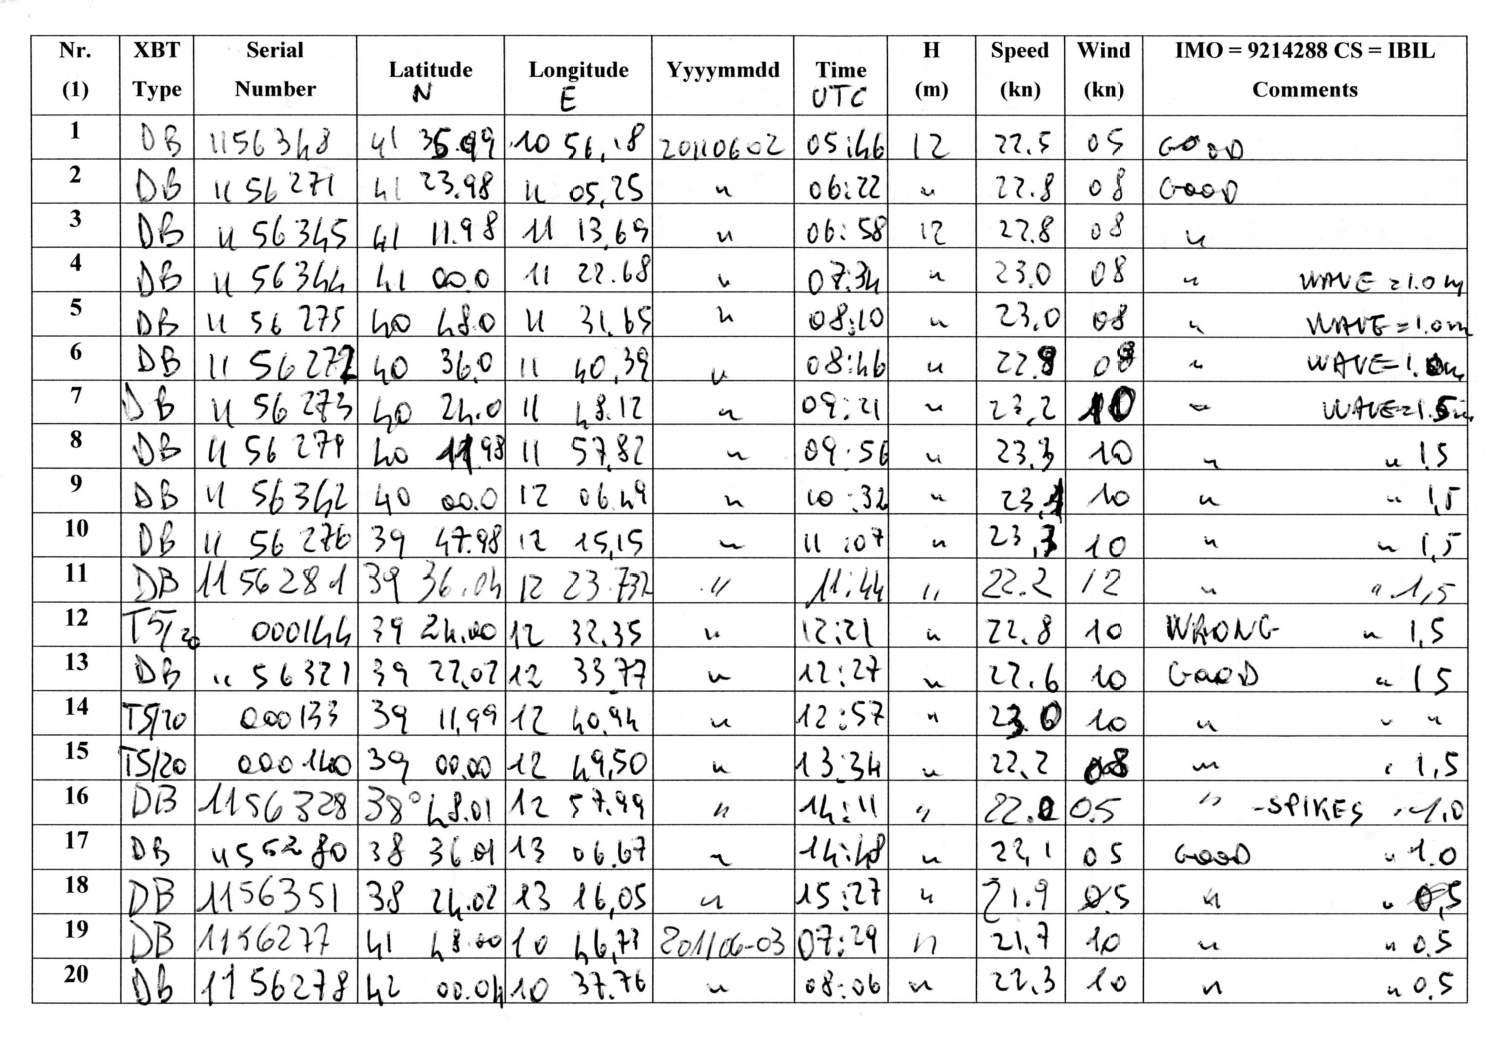 Nr. (1) XBT Type Serial Number Latitude N Longitude E Yyyymmdd Time UTC H (m) Speed (kn) Wind (kn) IMO = 9214288 CS = IBIL Comments
1 DB 1156348 41 35.99 10 56,18 20110602 05:46 12 22.5 05 GOOD
2 DB 1156271 41 23.98 11 05,25 " 06:22 " 22.8 08 GOOD
3 DB 1156345 41 11.98 11 13,69 " 06:58 12 22.8 08 "
4 DB 1156344 41 00.0 11 22.68 " 07:34 " 23.0 08 " WAVE = 1.0 m
5 DB 1156275 40 48.0 11 31,65 " 08:10 " 23.0 08 " WAVE = 1.0m
6 DB 1156272 40 36.0 11 40,39 " 08:46 " 22.9 08 " WAVE = 1.0m
7 DB 1156273 40 24.0 11 48.12 " 09:21 " 23,2 10 " WAVE = 1.5m
8 DB 1156279 40 11.98 11 57,82 " 09:56 " 23.3 10 " " 1,5
9 DB 1156342 40 00.0 12 06.49 " 10:32 " 23,1 10 " " 1,5
10 DB 1156276 39 47.98 12 15,15 " 11:07 " 23,3 10 " " 1,5
11 DB 1156281 39 36.04 12 23.732 " 11:44 " 22.2 12 " " 1,5
12 T5/20 000144 39 24.00 12 32.35 " 12:21 " 22.8 10 WRONG " 1,5
13 DB 1156321 39 22,02 12 33.77 " 12:27 " 22.6 10 GOOD " 1,5
14 T5/20 000133 39 11,99 12 40,94 " 12:57 " 23.0 10 " " "
15 T5/20 000140 39 00.00 12 49,50 " 13:34 " 22,2 08 " " 1,5
16 DB 1156328 38° 48.01 12 57.99 " 14:11 " 22.0 05 " -SPIKES " 1,0
17 DB 1155280 38 36.01 13 06.67 " 14:48 " 22,1 05 GOOD " 1.0
18 DB 1156351 38 24.02 13 16,05 " 15:27 " 21.9 05 " " 0,5
19 DB 1156277 41 48.00 10 46,73 201106-03 07:29 " 21,7 10 " " 0.5
20 DB 1156278 42 00.04 10 37.76 " 08:06 " 22,3 10 " " 0.5